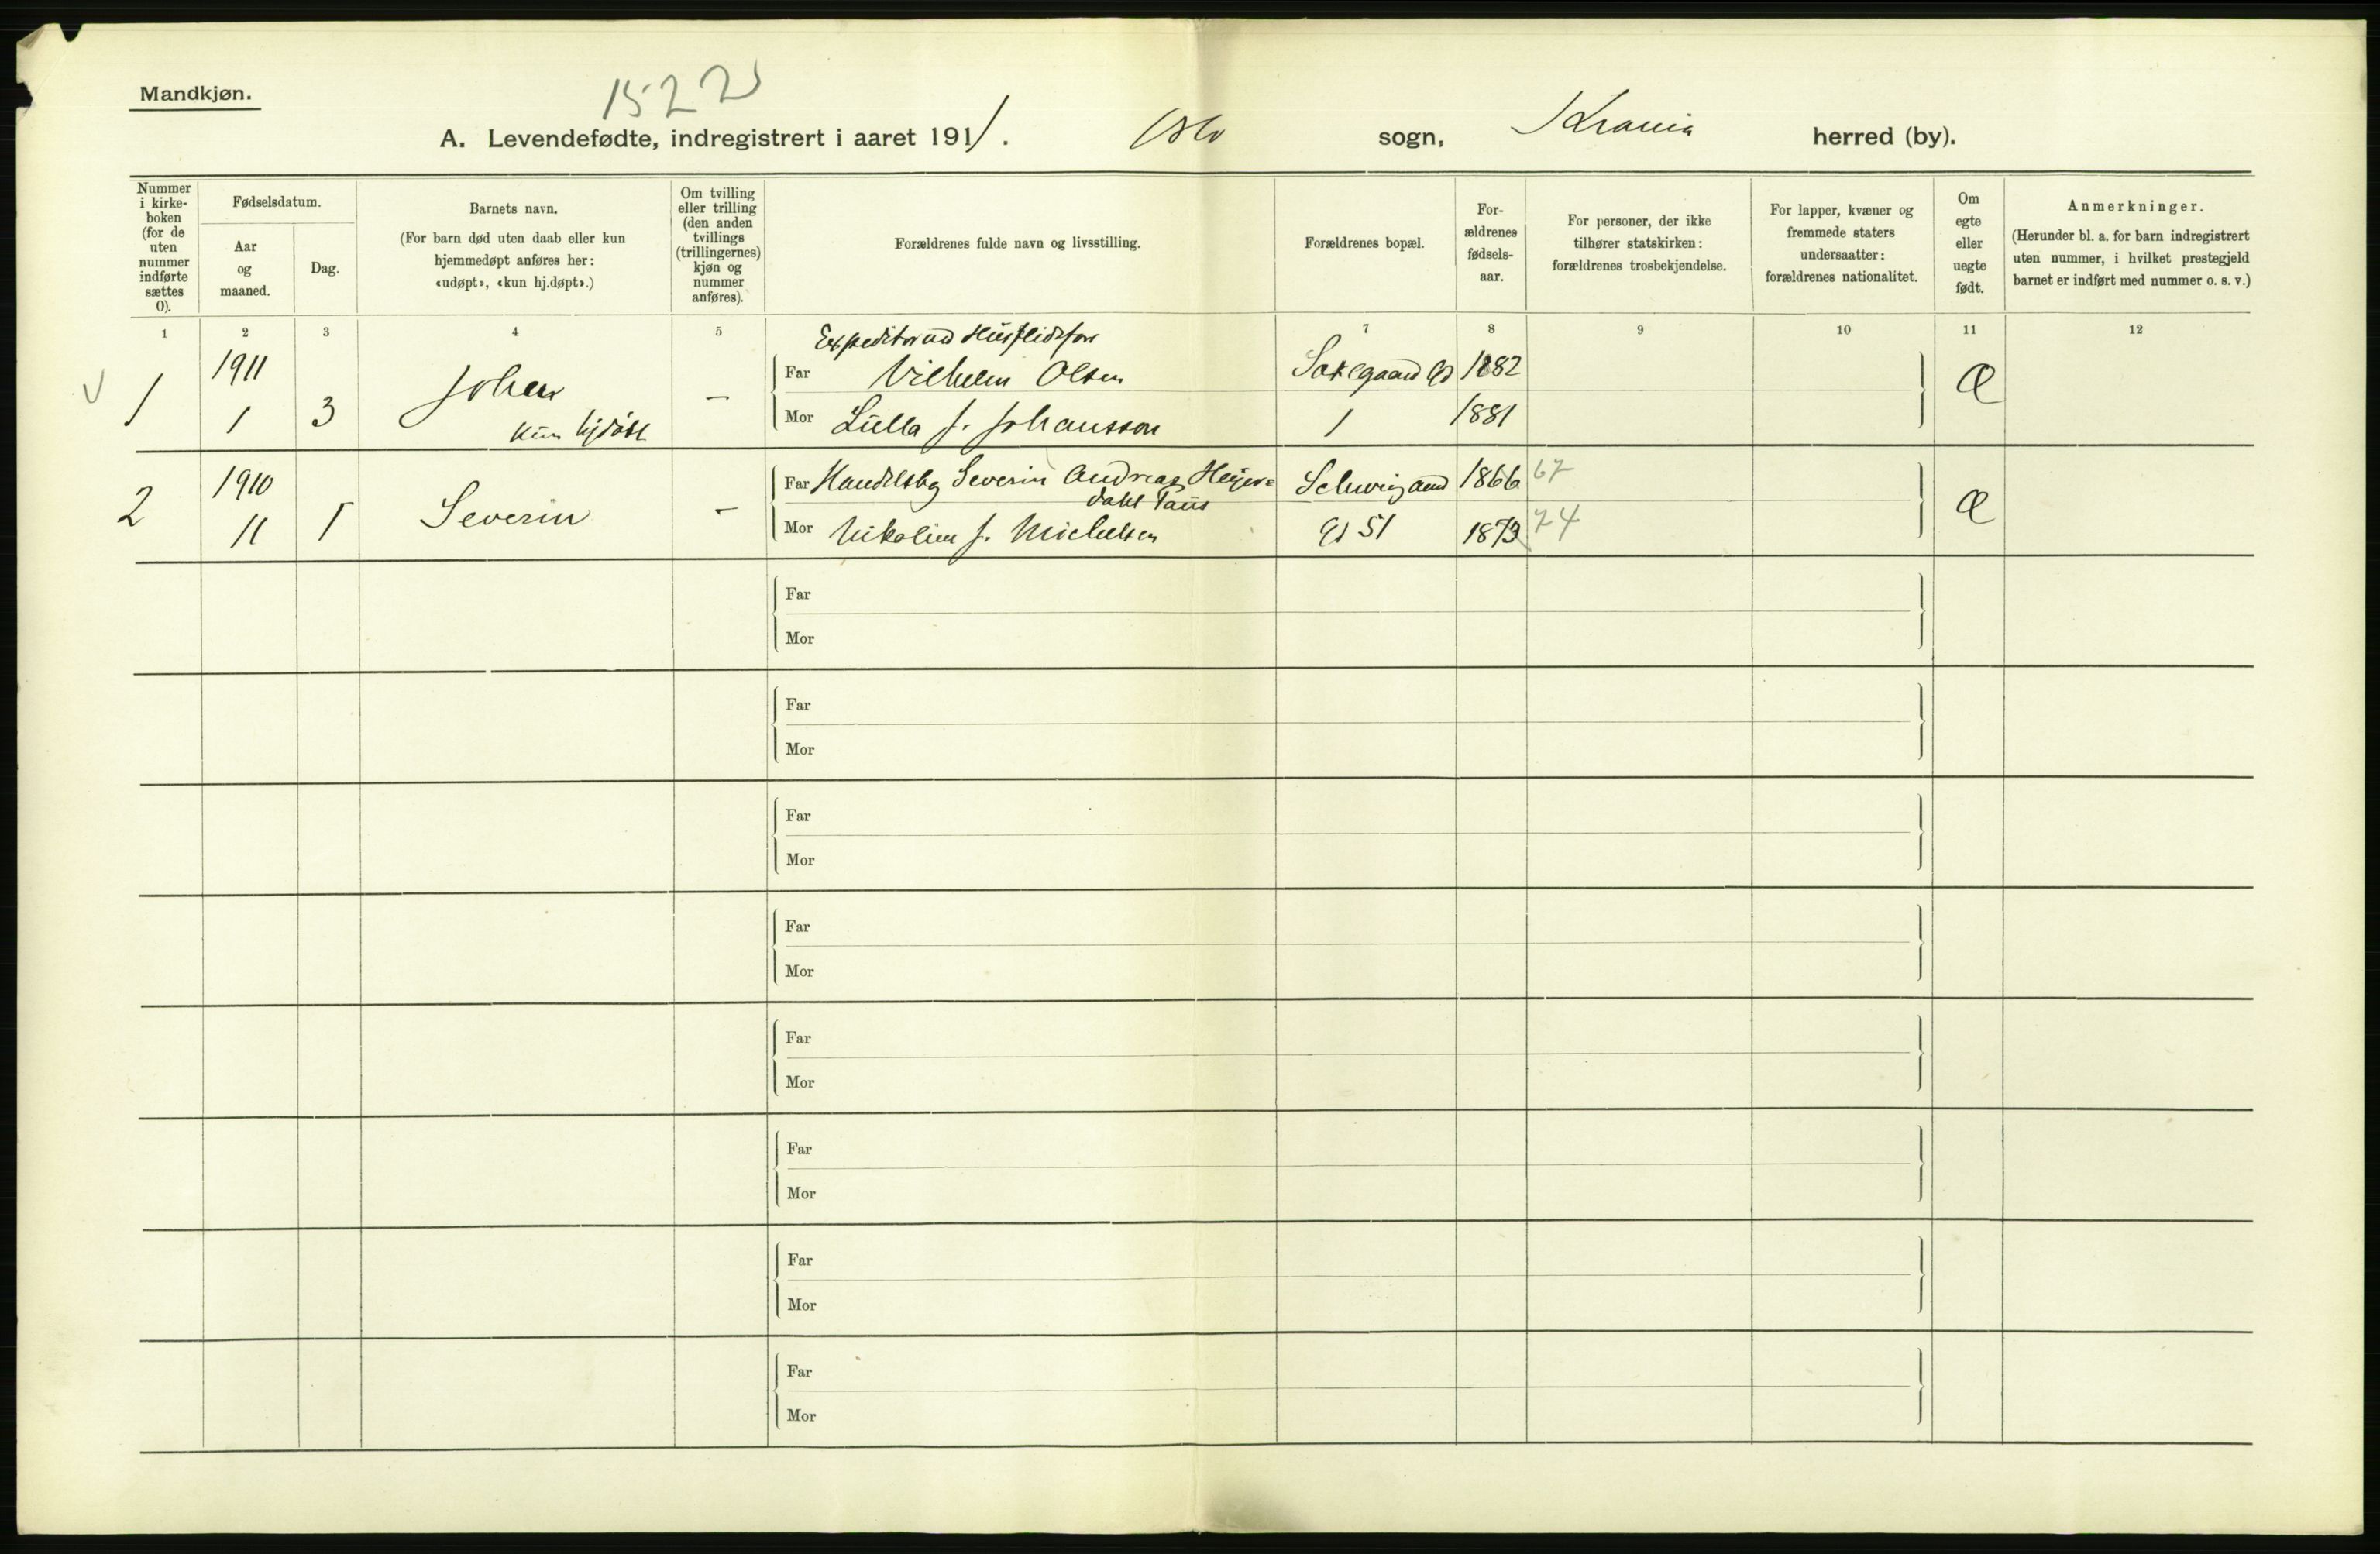 Mandkjøn.
1522
A. Levendefødte, indregistrert i aaret 1911. Oslo sogn, Krania herred (by).
Nummer i kirke-boken (for de uten nummer indførte sættes 0).
Fødselsdatum.
Aar og maaned.
Dag.
Barnets navn.
(For barn død uten daab eller kun hjemmedøpt anføres her: «udøpt», «kun hj.døpt».)
Om tvilling eller trilling (den anden tvillings (trillingernes) kjøn og nummer anføres).
Forældrenes fulde navn og livsstilling.
Forældrenes bopæl.
For-ældrenes fødsels-aar.
For personer, der ikke tilhører statskirken: forældrenes trosbekjendelse.
For lapper, kvæner og fremmede staters undersaatter: forældrenes nationalitet.
Om egte eller uegte født.
Anmerkninger.
(Herunder bl. a. for barn indregistrert uten nummer, i hvilket prestegjeld barnet er indført med nummer o. s. v.)
1 2 3 4 5 7 8 9 10 11 12
V 1 1911 1 3 Johan kun hjdøbt —
Expeditør ved Husflidsfor
Far Vilhelm Olsen 1882
Mor Lulla f. Johansson 1 1881
Æ
2 1910 11 1 Severin -
Far Handelsbg Severin Andreas Heyer= Schweigaard 1866 67
dahl
Mor Nikoline f. Michelsen Gd 51 1873 74
Æ
Far
Mor
Far
Mor
Far
Mor
Far
Mor
Far
Mor
Far
Mor
Far
Mor
Far
Mor